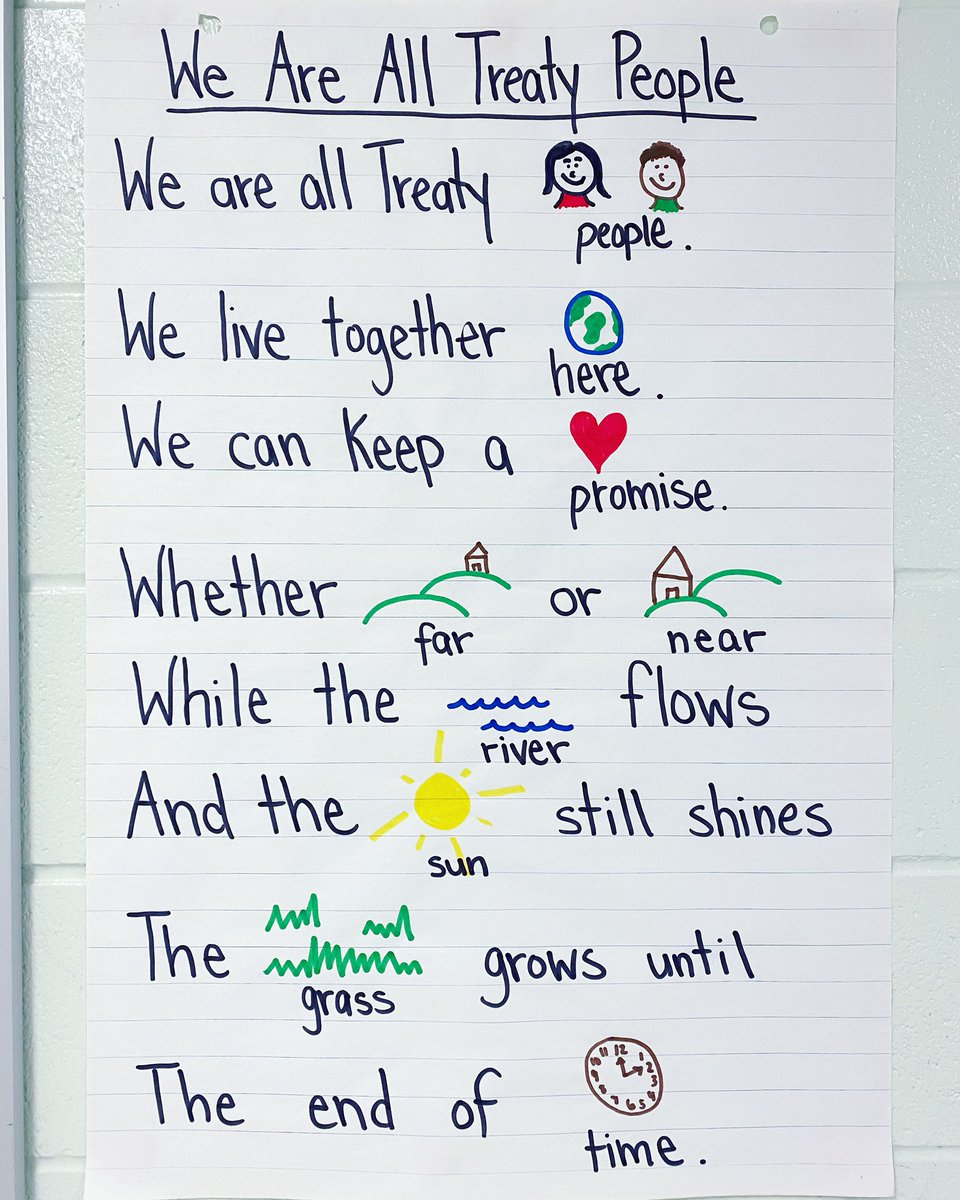 We Are All Treaty People
We are all Treaty
people.
We live together
here.
We can keep a
promise.
Whether or
far near
While the flows
river
And the still shines
sun
The grows until
grass
12
11 1
10 2
9 3
8 4
7 6 5
The end of
time.